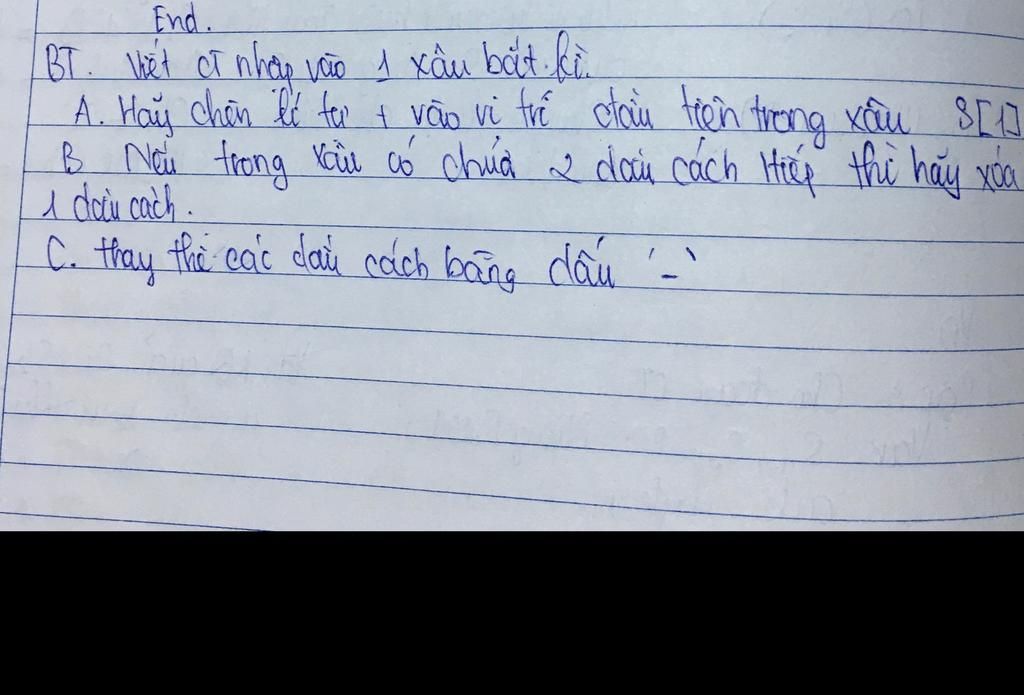 End.
BT. Viết CT nhập vào 1 xâu bất kì.
A. Hãy chèn kí tự + vào vị trí đầu tiên trong xâu S[1]
B Nếu trong xâu có chứa 2 dấu cách tiếp thì hãy xóa
1 dấu cách.
C. thay thế các dấu cách bằng dấu '-'